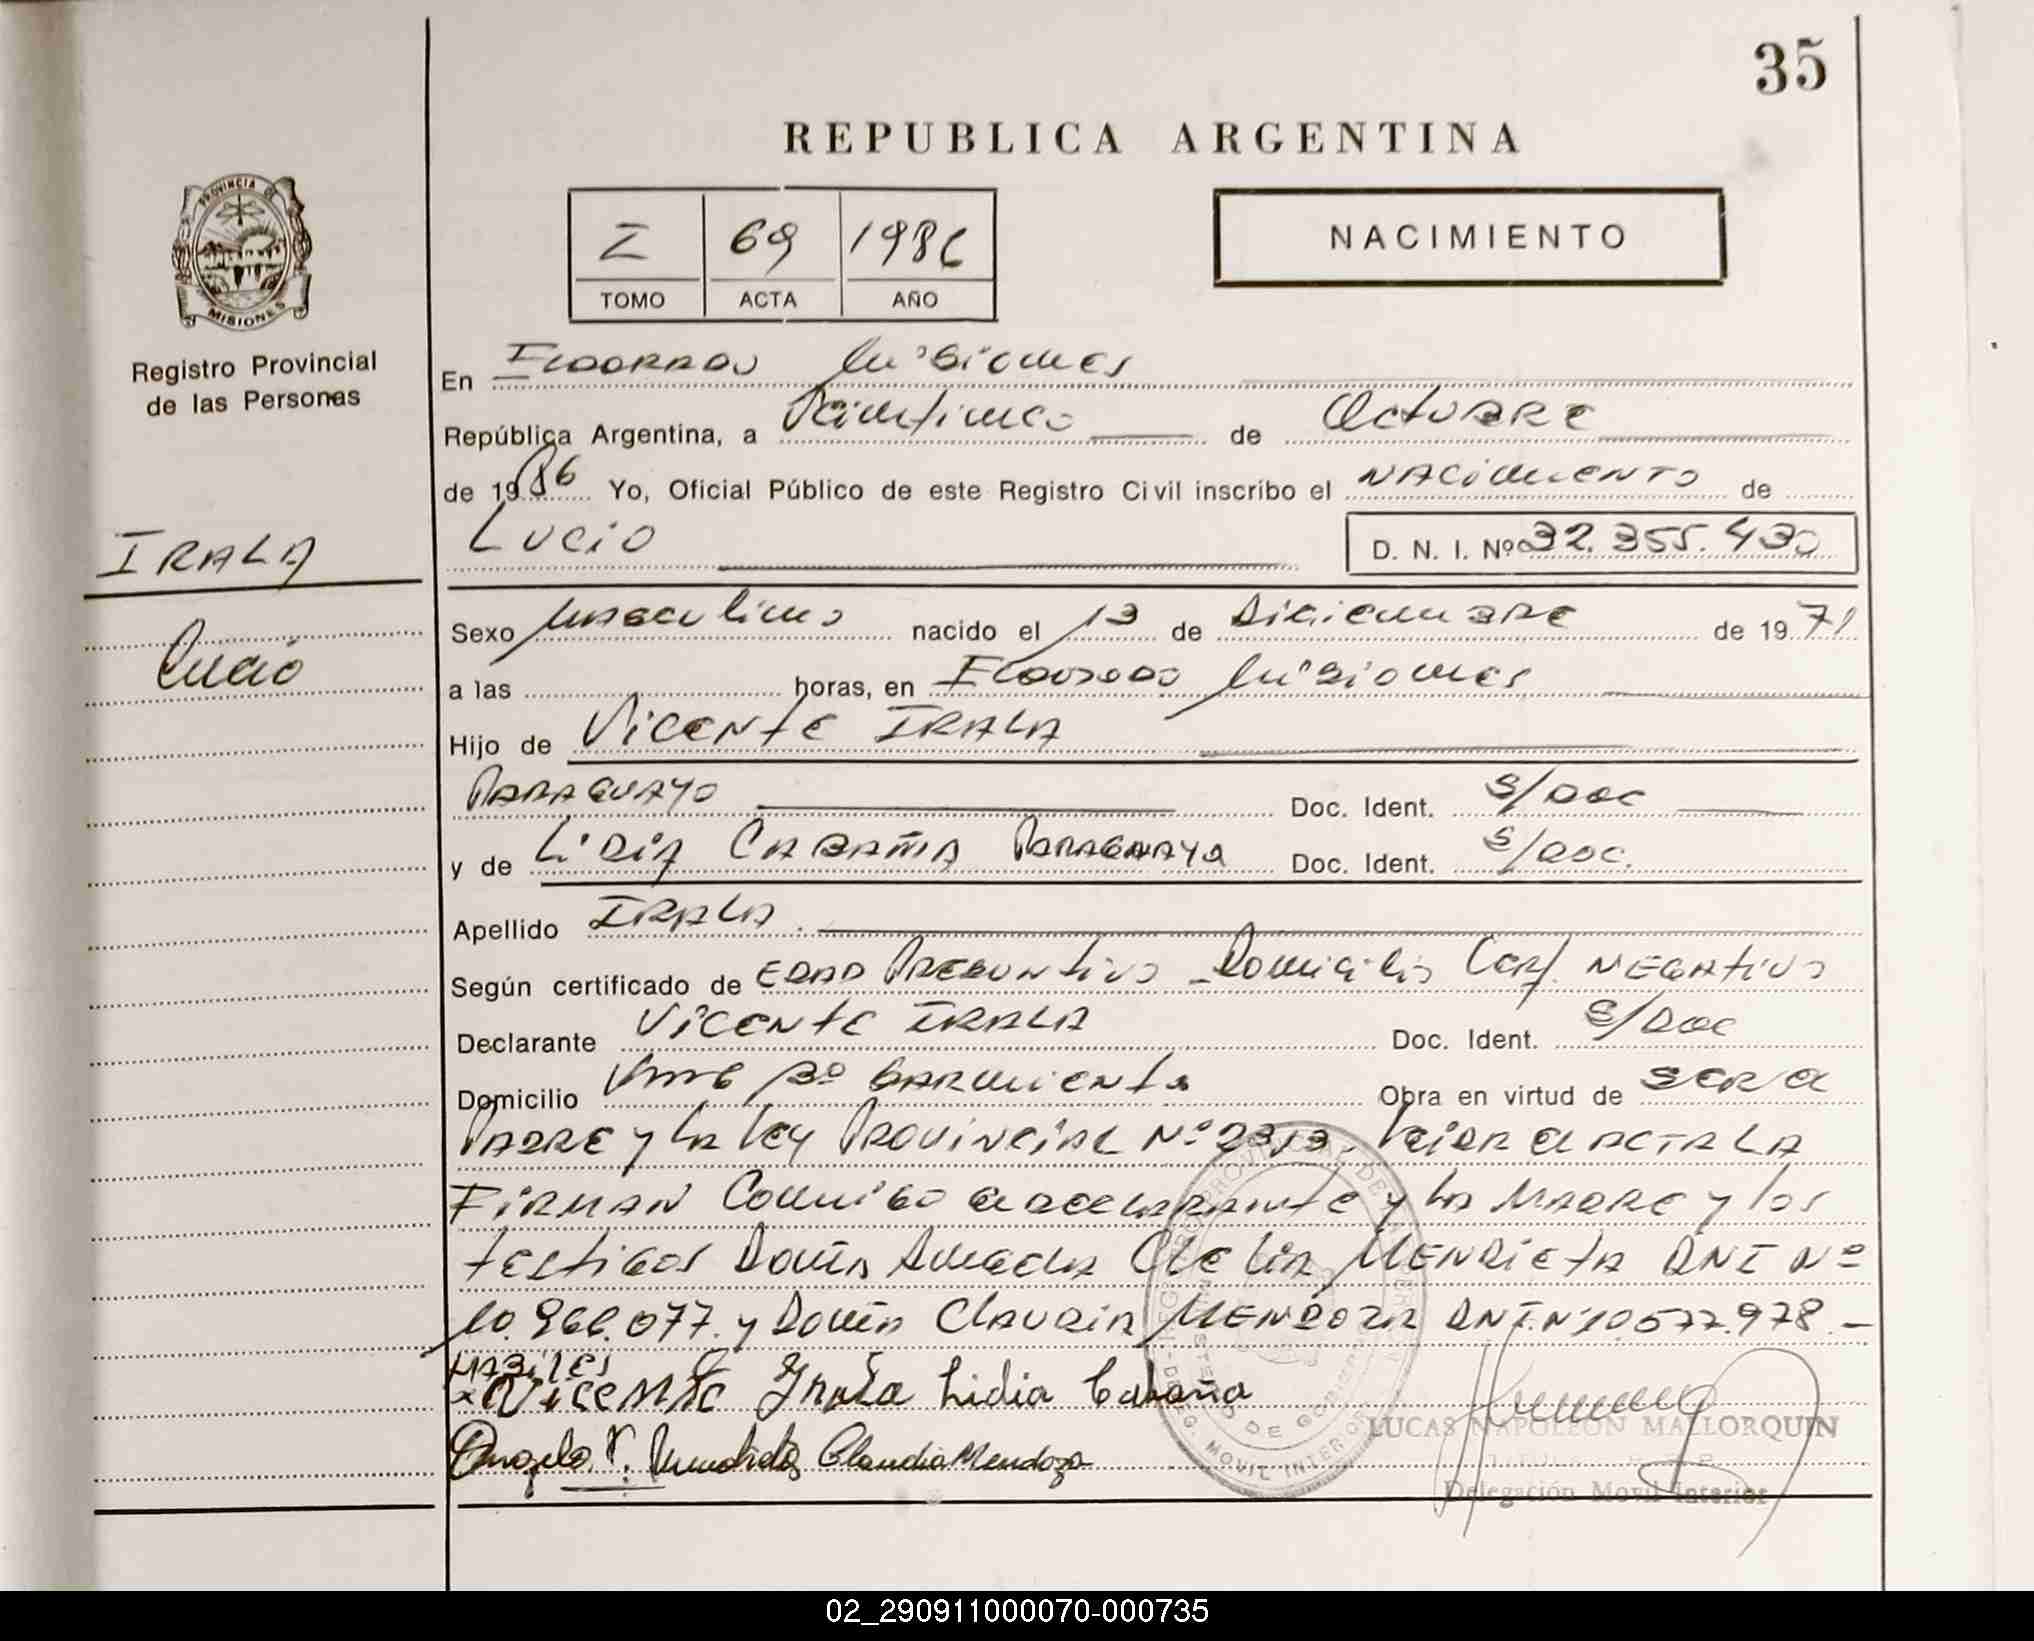 35
REPUBLICA ARGENTINA
I 69 1986
TOMO ACTA AÑO
NACIMIENTO
PROVINCIA DE
MISIONES
Registro Provincial
de las Personas
En ELDORADO Misiones
República Argentina, a Veinticinco de Octubre
de 1986 Yo, Oficial Público de este Registro Civil inscribo el NACIMIENTO de
LUCIO D. N. I. Nº 32.355.430
IRALA
Lucio
Sexo Masculino nacido el 13 de Diciembre de 1971
a las horas, en Eldorado Misiones
Hijo de Vicente IRALA
PARAGUAYO Doc. Ident. S/Doc
y de LiDiA CABAÑA PARAGUAYA Doc. Ident. S/Doc.
Apellido IRALA.
Según certificado de EDAD Presuntiva - Domicilio Cert. NEGAtivo
Declarante Vicente IRALA Doc. Ident. S/Doc
Domicilio Bº SARMIENTO Obra en virtud de SER el
PADRE y LA Ley PROVINCIAL Nº 2313. Leida el ACTA LA
FIRMAN Conmigo el declarante y la MADRE y los
testigos Doña Clelia MENDIETA DNI Nº
10.966.077. y Doña CLAUDIA MENDOZA DNI.Nº10.577.978.-
HABILES
x Vicente Irala Lidia Cabaña
Claudia Mendoza
LUCAS NAPOLEON MALLORQUIN
Delegación Movil Interior
02_290911000070-000735